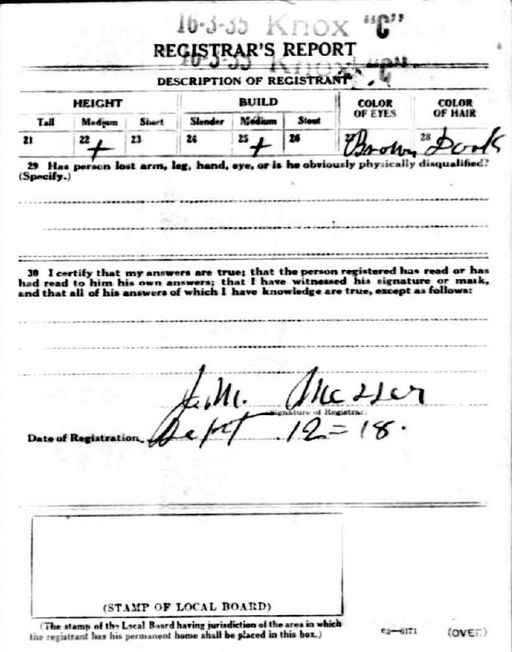 16-3-35 Knox "C"
REGISTRAR'S REPORT
16-3-35 Knox "C"
DESCRIPTION OF REGISTRANT
HEIGHT BUILD COLOR OF EYES COLOR OF HAIR
Tall Medium Short Slender Medium Stout
21 22 + 23 24 25 + 26 27 Brown 28 Dark
29 Has person lost arm, leg, hand, eye, or is he obviously physically disqualified?
(Specify.)
30 I certify that my answers are true; that the person registered has read or has
had read to him his own answers; that I have witnessed his signature or mark,
and that all of his answers of which I have knowledge are true, except as follows:
J. M. Messer
Signature of Registrar
Date of Registration Sept 12=18.
(STAMP OF LOCAL BOARD)
(The stamp of the Local Board having jurisdiction of the area in which
the registrant has his permanent home shall be placed in this box.)
03-6171 (OVER)